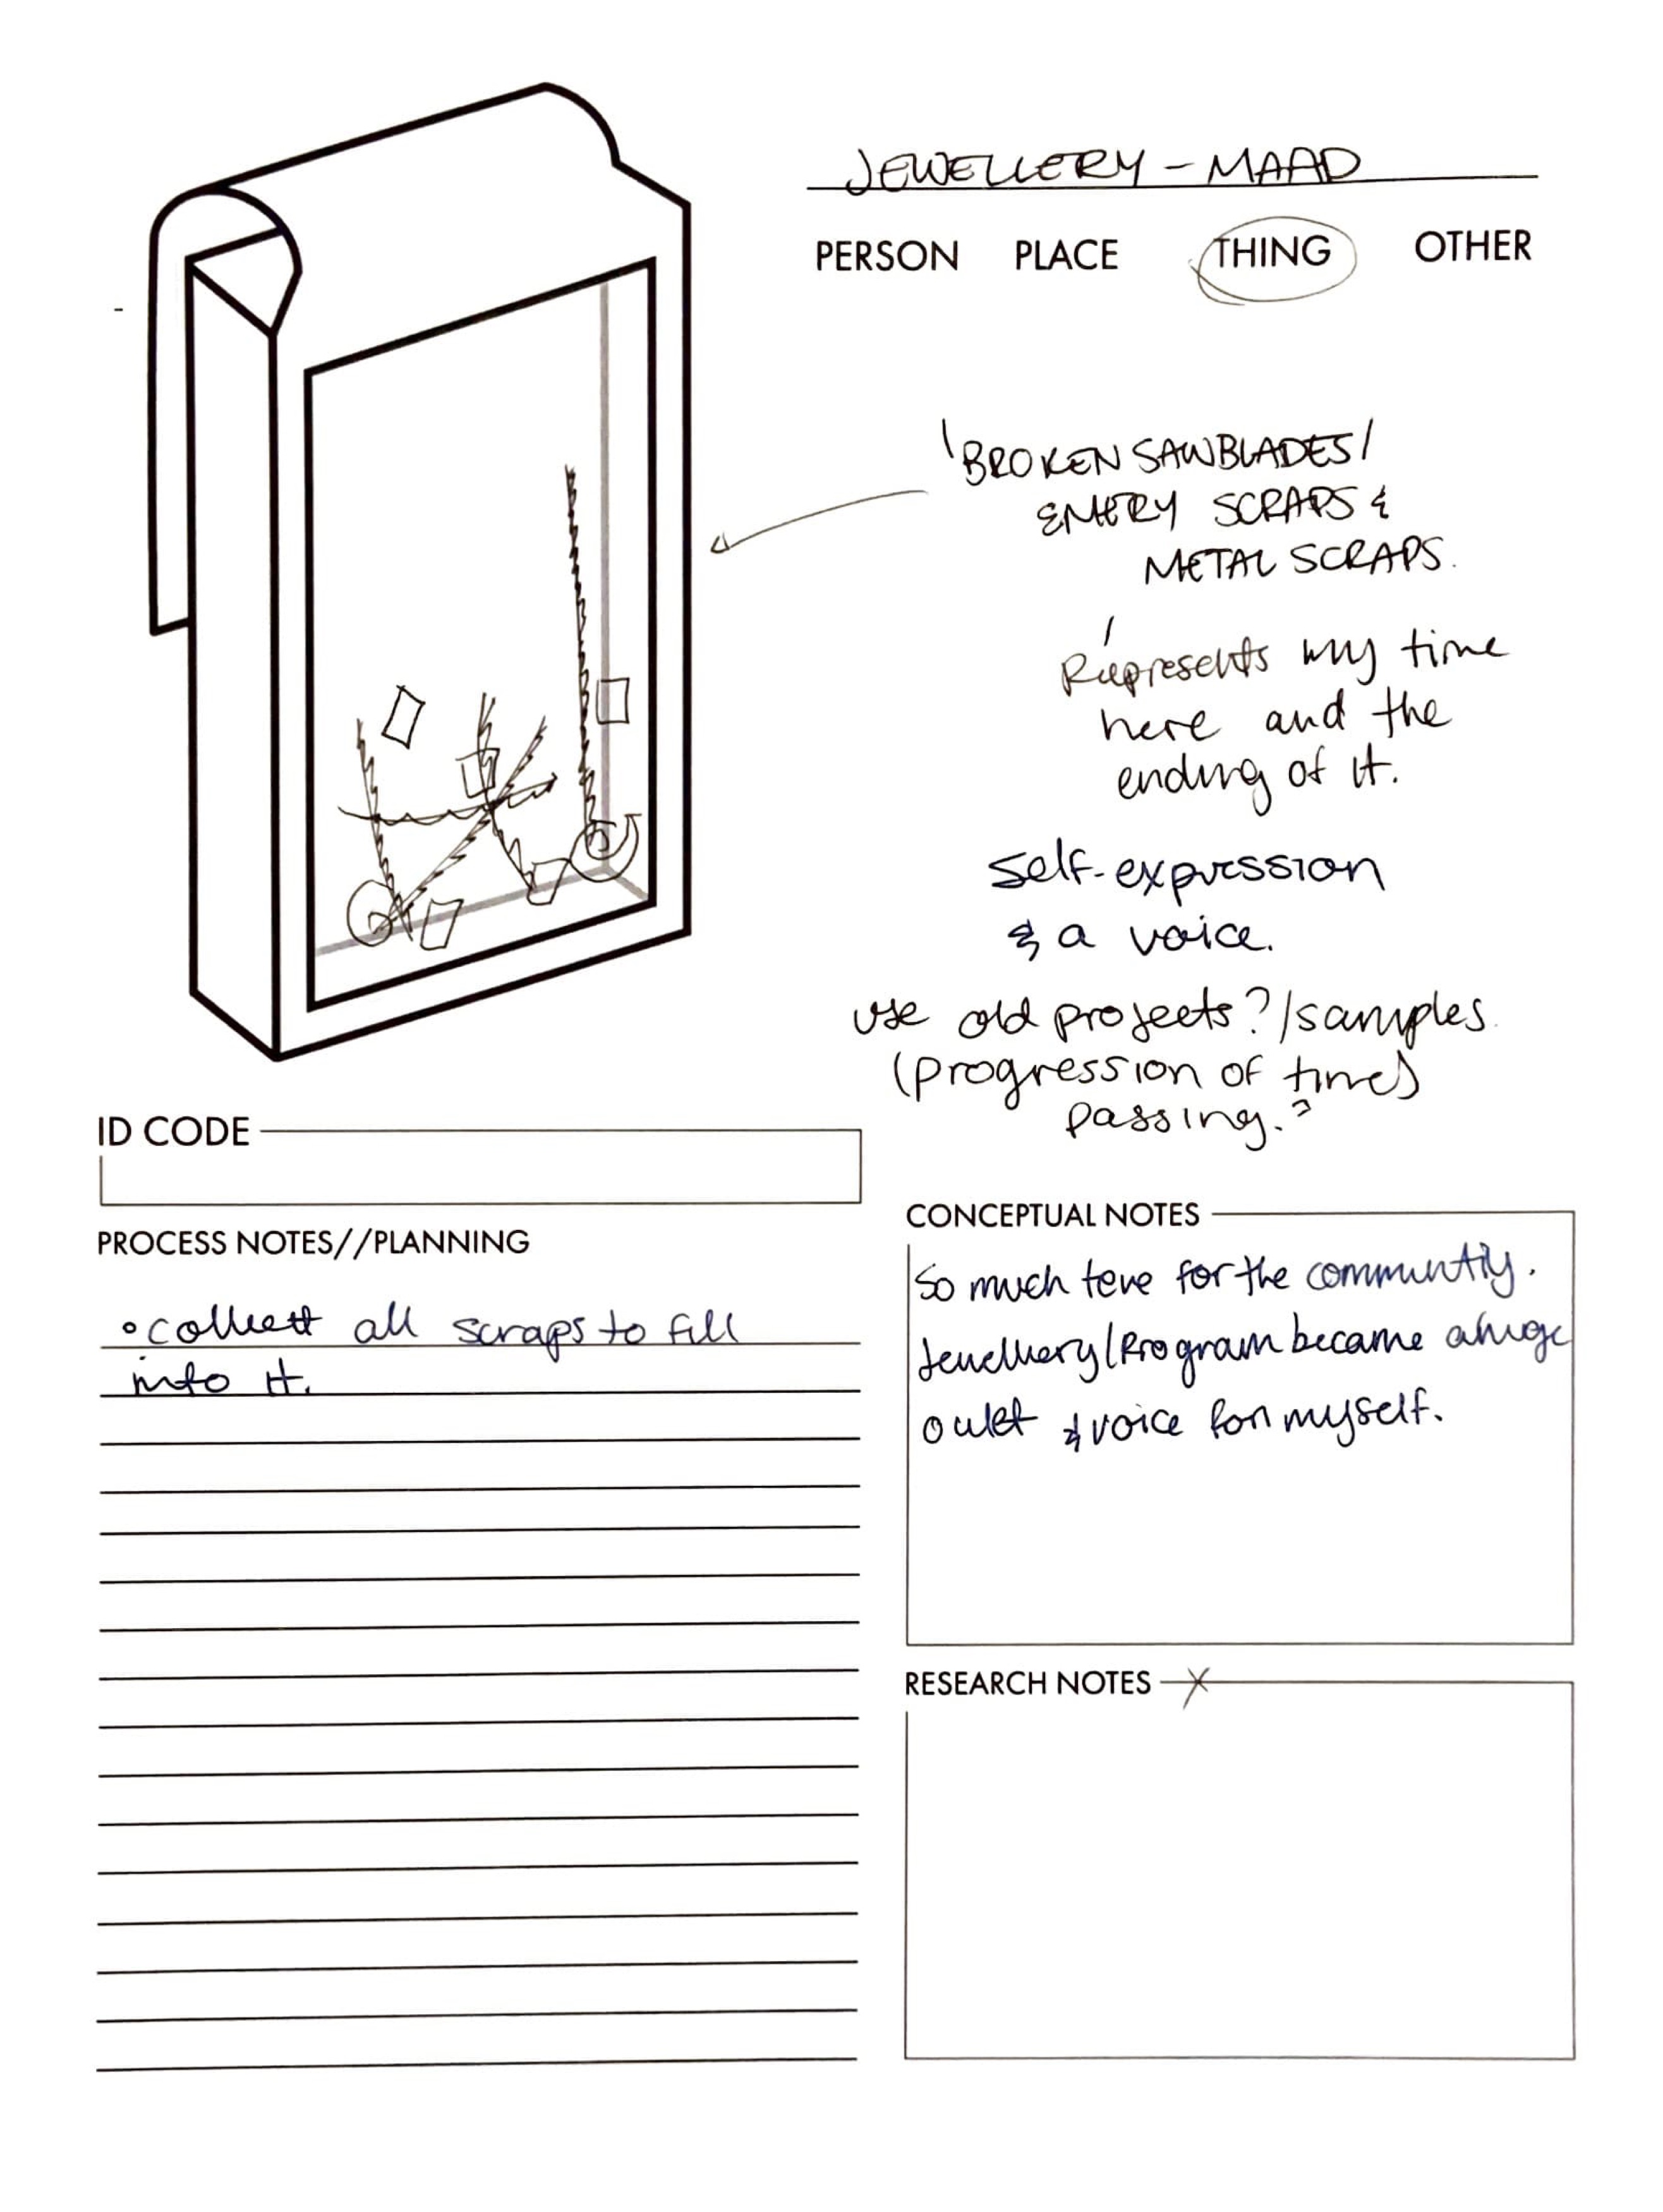 JEWELLERY - MAAD
PERSON PLACE THING OTHER
'BROKEN SAWBLADES/
EMERY SCRAPS &
METAL SCRAPS.
Represents my time
here and the
ending of it.
self-expression
& a voice.
use old projects?/samples.
(progression of time)
passing.?
ID CODE
PROCESS NOTES//PLANNING
• collect all scraps to fill
into it.
CONCEPTUAL NOTES
So much love for the community.
Jewellery/Program became a huge
oulet & voice for myself.
RESEARCH NOTES